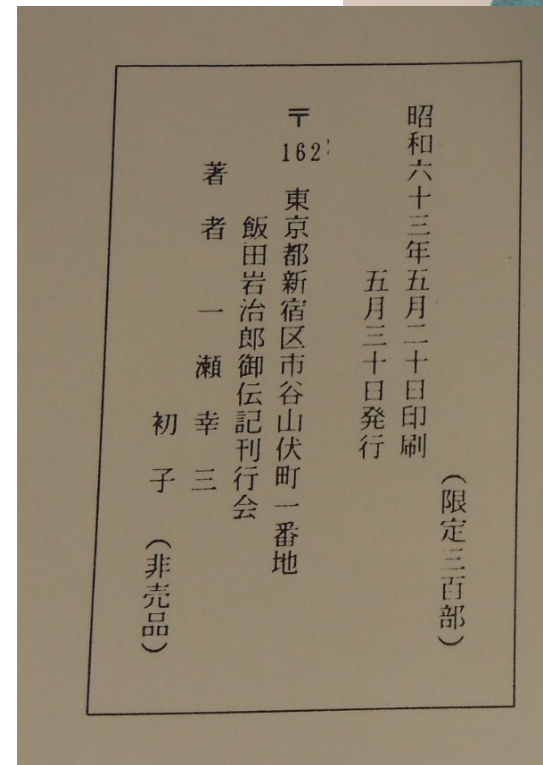 （限定三百部）
昭和六十三年五月二十日印刷
五月三十日発行
〒162 東京都新宿区市谷山伏町一番地
飯田岩治郎御伝記刊行会
著者 一瀬幸三
初子
（非売品）